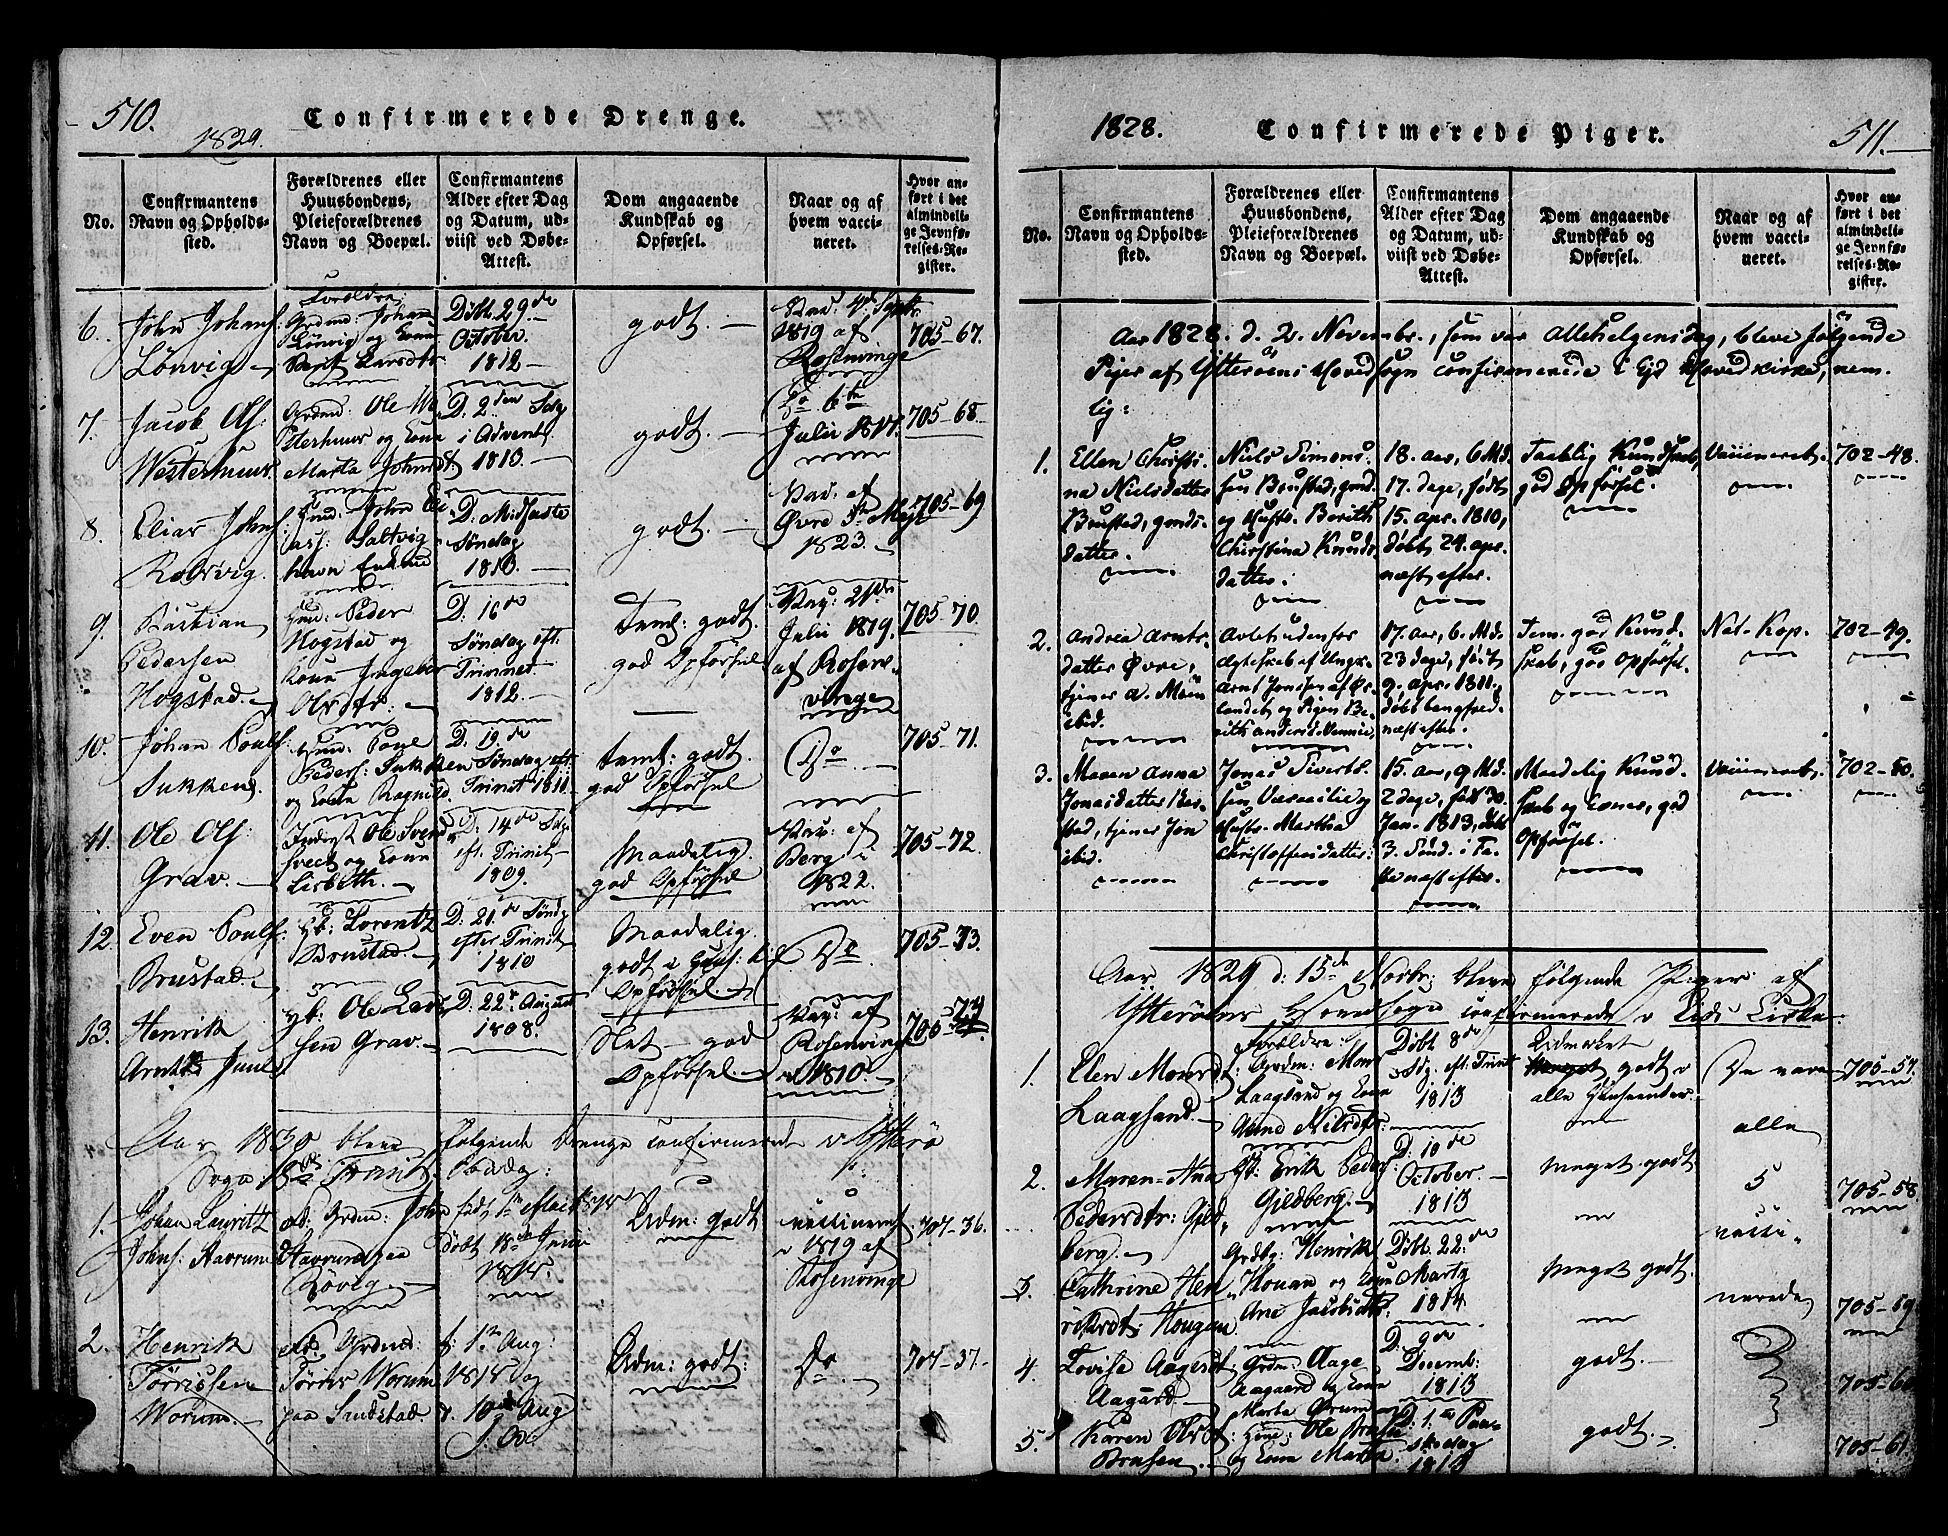 510.
Confirmerede Drenge.
1829.
No.
Confirmantens
Navn og Opholds-
sted.
Forældrenes eller
Huusbondens,
Pleieforældrenes
Navn og Boepæl.
Confirmantens
Alder efter Dag
og Datum, ud-
viist ved Døbe-
Attest.
Dom angaaende
Kundskab og
Opførsel.
Naar og af
hvem vacci-
neret.
Hvor an-
ført i det
almindeli-
ge Jevnfø-
relses-Re-
gister.
6.
John Johans:
Lönvig
Forældre
Grdmd: Johan
Lönvig og Kone
Berit Larsdtr
Döbt. 29de
October.
1812
godt.
Vac. 4de Septbr
1819 af
Rosenvinge
705-67.
7.
Jacob Ols:
Westerhuus
Grdmd: Ole We-
sterhuus og Kone
Marta Johnsd:
D. 2den Sdg
i Advent.
1813.
godt.
Do 6te
Julii 1817.
705-68.
8.
Elias Johns:
Rolsvig.
D: Midfaste
Söndag
1813.
godt
Vac. af
Øvre
1823.
705-69
9.
Bastian
Pedersen
Hogstad.
Huusmd: Peder
Hogstad og
Kone Ingebor
Olsdtr.
D. 16de
Söndag eft.
Trinnet.
1812.
Teml: godt.
god Opförsel
Vac: 21de
Julii 1819.
af Rosen-
vinge
705-70.
10.
Johan Pouls:
Sukken.
Huusmd: Poul
Peders: Sukken
og Kone Ragnild.
D. 19de
Söndag eft.
Trinit 1811.
Teml: godt.
god Opförsel
Do
705-71.
11.
Ole Ols:
Grav.
Inderst Ole Svend-
og Kone
Lisbeth.
D: 14de Sdg.
eft. Trinit
1809.
Maadelig.
god Opförsel
Vac: af
Berg i
1822.
705-72.
12.
Even Pouls:
Brustad.
Hb: Lorentz
Brustad.
D. 21de Söndg
efter Trinit
1810
Maadelig.
godt i
Opförsel.
Do
705-73.
13.
Henrik
Arnt Juul
Hb: Ole Lar-
sen Grav.
D. 22de August
1808.
Slet god
Opförsel.
Vac: af
Rosenvinge
1810.
705-74
Aar 1830 bleve Fölgende Drenge confirmerede i Ytterö
Sogn 18de Trinit: Söndag:
1.
Johan Lauritz
Johns: Havrum
Grdmd: John
Havrum paa
Lövig.
döbt 18de Junii
Udm: godt
vaccineret
i 1819 af
Rosenvinge
707-36.
2.
Henrik
Törrissen
Worum.
Grdmd:
Törris Worum
paa Sundstad.
f. 1te Aug:
1814 og
d. 10de Aug
Udm: godt:
Do
707-37.
1828.
Confirmerede Piger.
511.
No.
Confirmantens
Navn og Opholds-
sted.
Forældrenes eller
Huusbondens,
Pleieforældrenes
Navn og Boepæl.
Confirmantens
Alder efter Dag
og Datum, ud-
viist ved Døbe-
Attest.
Dom angaaende
Kundskab og
Opførsel.
Naar og af
hvem vacci-
neret.
Hvor an-
ført i det
almindeli-
ge Jevnfø-
relses-Re-
gister.
Aar 1828. d. 2. Novembr., som var Allehelgensdag, bleve følgende
Piger af Ytteröens Hovedsogn confirmerede i Eid Hovedkirke, nem-
lig:
1.
Ellen Christi-
na Nielsdatter
Brustad, gmds.
datter.
Niels Simons-
sen Brustad, gmd.
og Hustr. Berith
Christina Knuds-
datter.
18. aar, 6 Md.
17. dage, født
15. apr. 1810,
døbt 24. apr.
næstefter.
Taalelig Kundskab,
god Opførsel.
Vaccineret.
702-48.
2.
Andrea Arnts-
datter Øvre,
tjener a. Mæn
ibid.
Avlet udenfor
Ægteskab af Ungk.
Arnt Jonssen af Ør-
landet og Pigen Be-
rith Andersd. Vennes,
17. aar, 6. Md.
23 dage, født
9. apr. 1811.
døbt Langfred.
næstefter.
Tem. god Kund-
skab, god Opførsel.
Nat. Kop.
702-49.
3.
Maren Anna
Jonasdatter Ber-
stad, tjener Jon
ibid.
Jonas Siverts-
sen Væraaslie og
Hustr. Martha
Christoffersdatter.
15. aar, 9 Md.
2 dage, født 30.
Jan. 1813, døbt
3. Sønd. i Fa-
ste næstefter.
Maadelig Kund-
skab og Evner, god
Opførsel.
Vaccineret.
702-50.
Aar 1829 d: 15de Novbr: bleve følgende Piger af
Ytteröens Hovedsogn confirmerede i Eids Kirke
1.
Elen Monsdt:
Laagsand.
Forældre:
Grdm: Mons
Laagsand og Kone
Anne Nilsdtr:
Döbt 8de
Sdg. eft. Trinit
1813
Udmerket
godt i
alle Henseender.
De være
705-57.
2.
Maren-Ana
Pedersdtr: Gjeld-
berg.
Erik Peders:
Gjeldberg.
D: 10de
October.
1813
Meget godt
alle
5
705-58.
3.
Cathrine Hen-
riksdt: Hougan
Grdbg: Henrik
Houan og Kone
Ane Jacobsdtr:
Döbt. 22de
Marty
1814
Meget godt.
vacci-
nerede
705-59
4
Lovise Aagesdt:
Aagard.
Grdm: Aage
Aagaard og Kone
Marta
D. 9de
Decemb:
1813
godt.
705-60
5.
Karen Olsdt:
Brusen.
Huusmd: Ole
og Kone Marta.
D: 1. Paa-
skedag
1813
godt.
705-61.